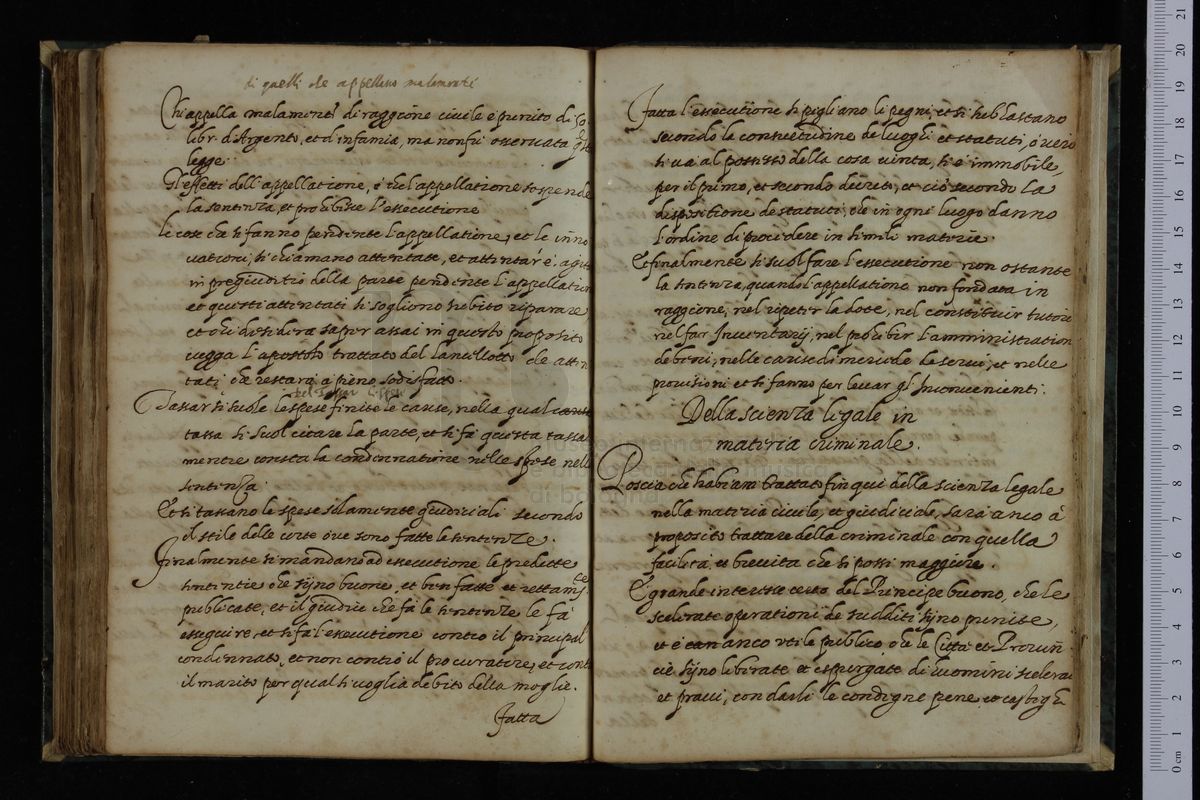 di quelli che appellano malamente
Chi appella malamente di raggione civile è punito di 50.
libr. d'Argento, et d'infamia, ma non fù osservata q.sta
legge.
Gl'effetti dell'appellatione, è che l'appellatione sospende
la sentenza, et prohibisse l'essecutione
le cose che si fanno pendente l'appellatione, et le inno
vationi, si chiamano attentate, et attentar è. agire
in pregiuditio della parte pendente l'appellation
et questi attentati si sogliono subito riparare
et chi desidera saper assai in questo proposito
vegga l' trattato del lancillotto de atten
tati, che restarà à pieno sodisfatto.
Tassar si suole le spese finite le cause, nella qual causa
tassa si suol citare la parte, et si fà questa tassa
mentre consta la condennatione nelle spese nella
sentenza.
Et si tassano le spese solamente giudiciali secondo
il stile delle corte ove sono fatte le sentenze.
Finalmente si mandano ad essecutione le predette
sententie che sijno buone, et ben fatte et rettam.te
publicate, et il giudice che fà le sentenze le fà
eseguire, et si fà l'essecutione contro il principal
condennato, et non contro il procuratore, et contr
il marito per qual si voglia debito della moglie.
Fatta
Fatta l'essecutione si pigliano li pegni, et si subhastano
secondo la consuetudine de luoghi et statuti, ò vero
si và al possesso della cosa vinta, s'è immobile,
per il primo, et secondo decreto, et ciò secondo la
dispositione de statuti, che in ogni luogo danno
l'ordine di procedere in simili materie.
Et finalmente si suol fare l'essecutione non ostante
la sentenza, quando l'appellatione non fondata in
raggione, nel ripeter la dote, nel constituir tutore
nel far Inventarij, nel prohibir l'amministration
de beni, nelle cause di mercede le servi, et nelle
provisioni et si fanno per levar gl'Inconvenienti.
Della scienza legale in
materia criminale.
Poscia che habiam trattato fin qui della scienza legale
nella materia civile, et giudiciale, sarà anco à
proposito trattare della criminale con quella
facilità, et brevità che si possi maggiore.
E grande interesse certo del Principe buono, che le
scelerate operationi de sudditi sijno punite,
et è anco utile publico che le Città et Provin
cie sijno liberate et espurgate di huomini scelerati
et pravi, con darli le condigne pene et castighi